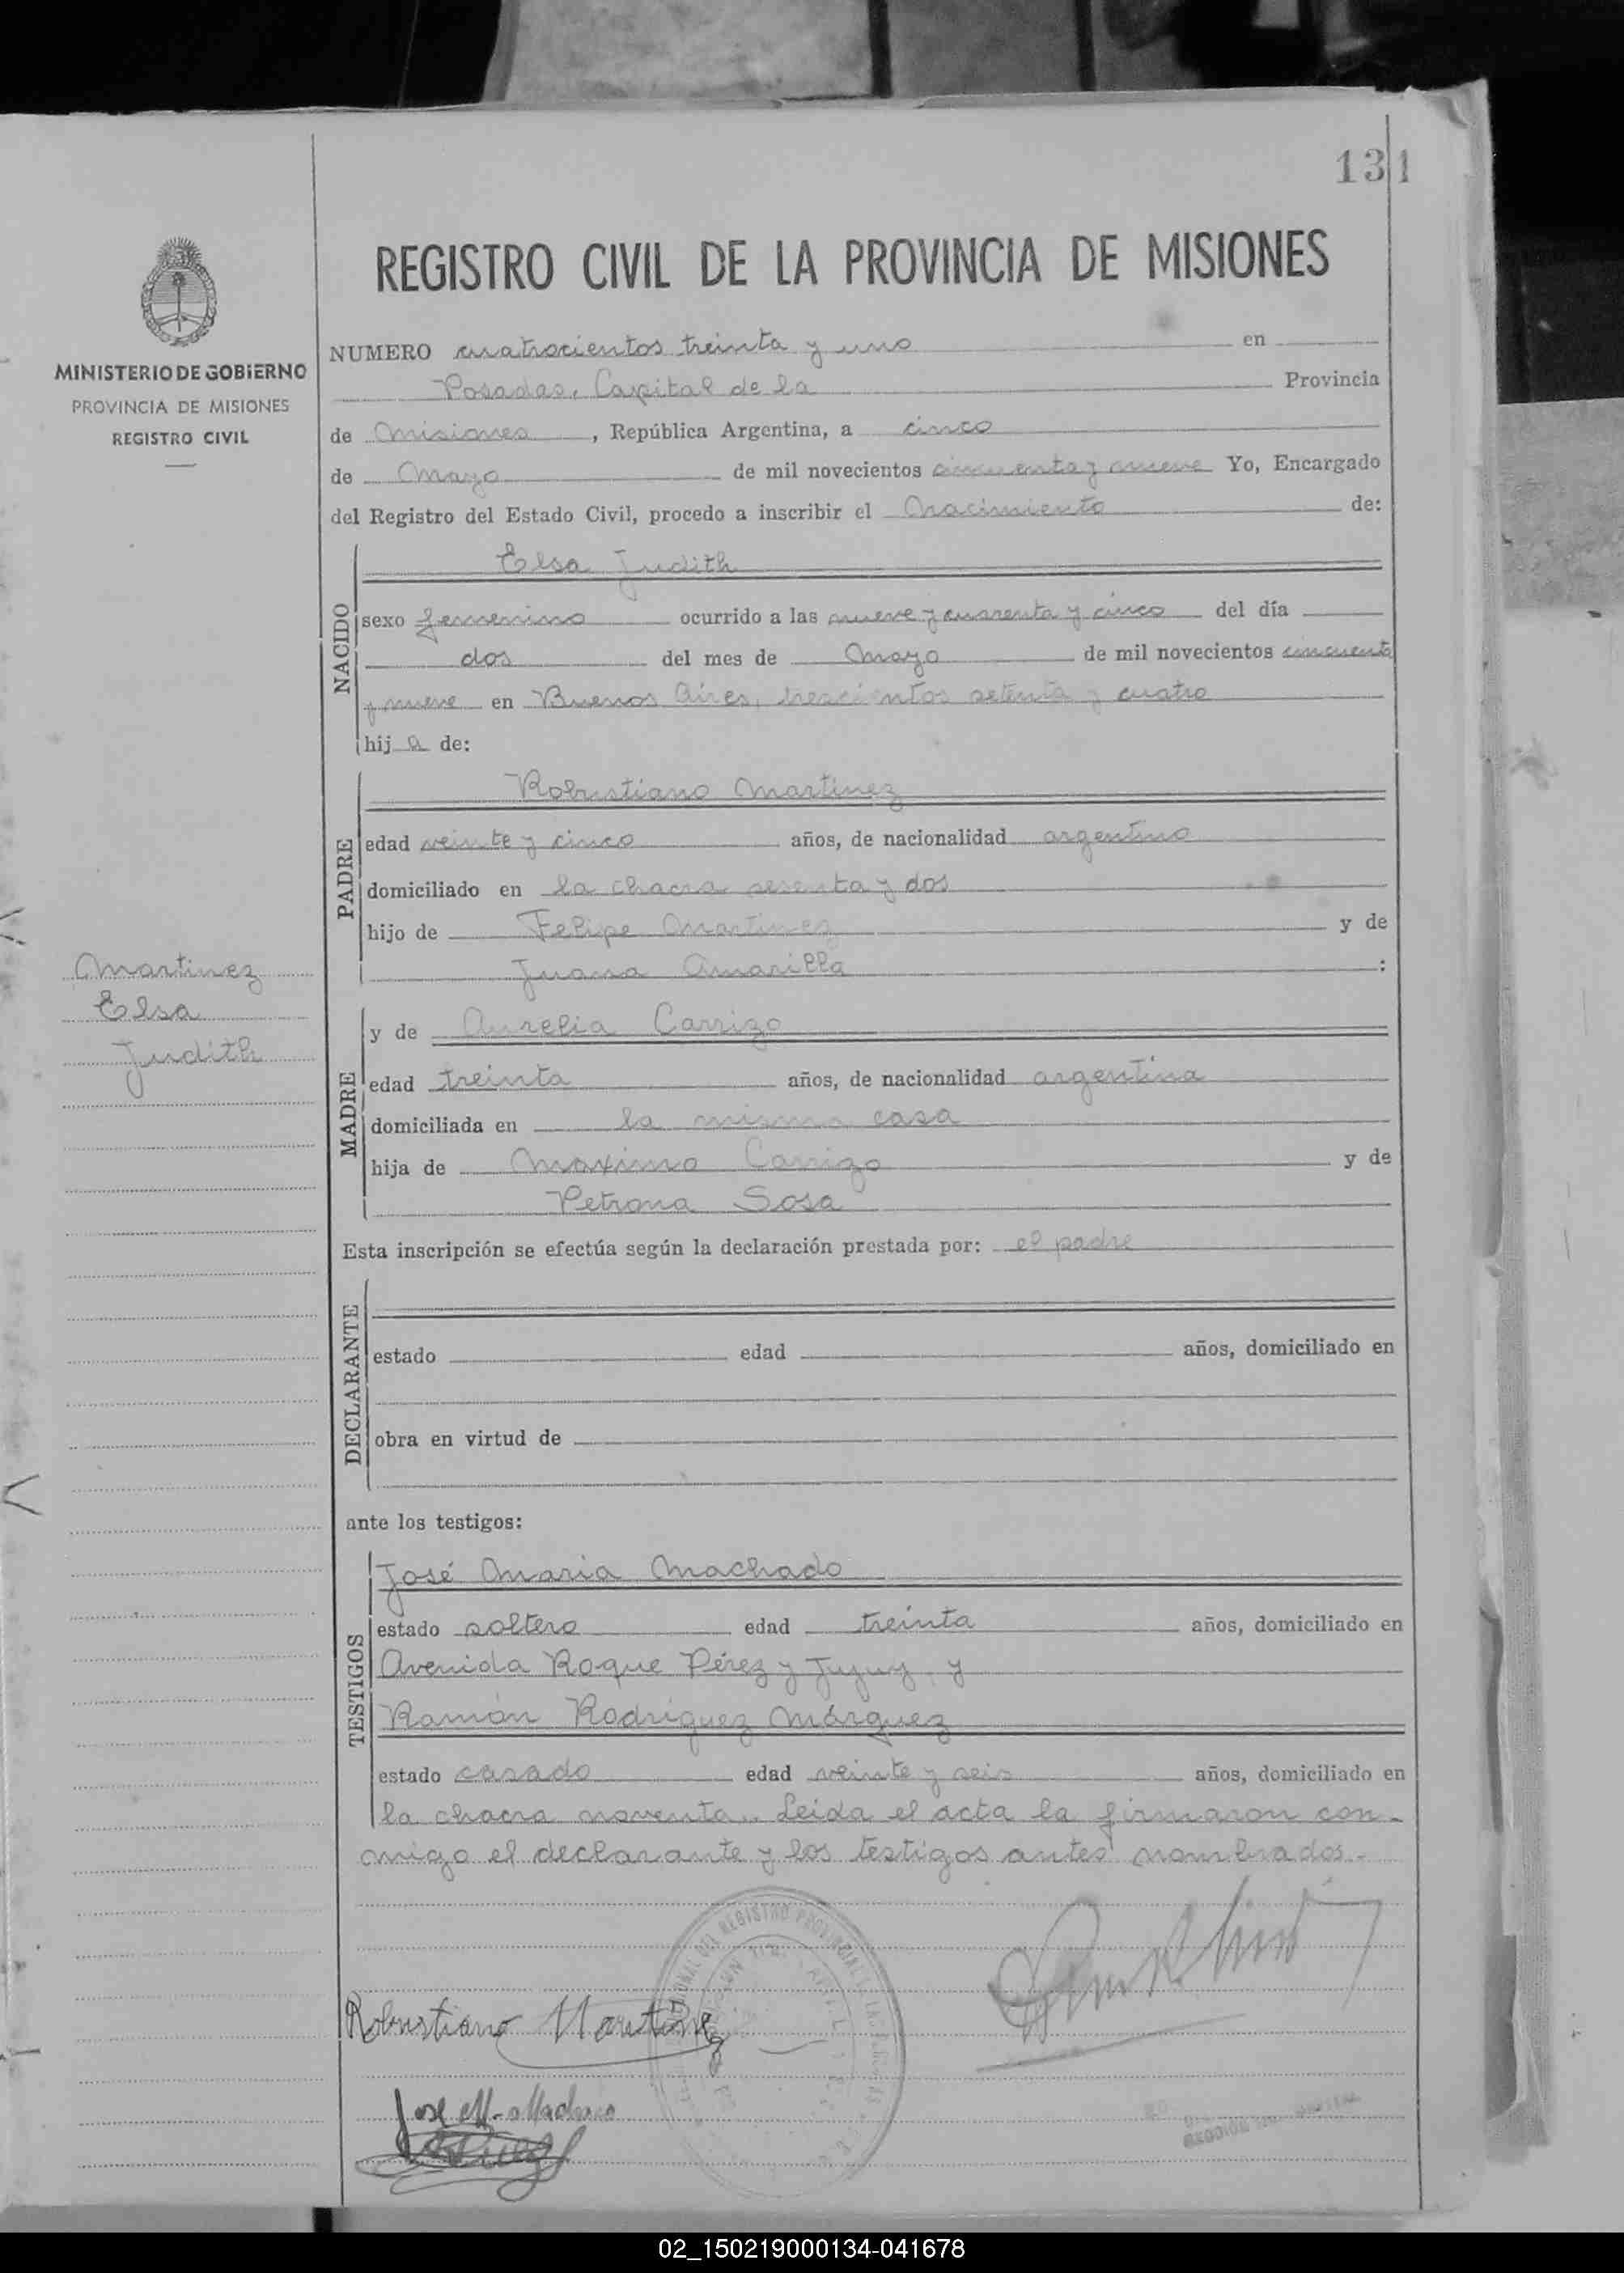 131
REGISTRO CIVIL DE LA PROVINCIA DE MISIONES
MINISTERIO DE GOBIERNO
PROVINCIA DE MISIONES
REGISTRO CIVIL
NUMERO cuatrocientos treinta y uno en
Posadas, Capital de la Provincia
de Misiones, República Argentina, a cinco
de Mayo de mil novecientos cincuenta y nueve Yo, Encargado
del Registro del Estado Civil, procedo a inscribir el Nacimiento de:
NACIDO
Elsa Judith
sexo femenino ocurrido a las nueve y cuarenta y cinco del día
dos del mes de Mayo de mil novecientos cincuenta
y nueve en Buenos Aires, trescientos setenta y cuatro
hija de:
PADRE
Robustiano Martinez
edad veinte y cinco años, de nacionalidad argentino
domiciliado en la chacra sesenta y dos
hijo de Felipe Martinez y de
Juana Amarilla :
Martinez
Elsa
Judith
MADRE
y de Aurelia Carrizo
edad treinta años, de nacionalidad argentina
domiciliada en la misma casa
hija de Maximo Carrizo y de
Petrona Sosa
Esta inscripción se efectúa según la declaración prestada por: el padre
DECLARANTE
estado edad años, domiciliado en
obra en virtud de
ante los testigos:
TESTIGOS
José Maria Machado
estado soltero edad treinta años, domiciliado en
Avenida Roque Pérez y Jujuy, y
Ramón Rodriguez Márquez
estado casado edad veinte y seis años, domiciliado en
la chacra noventa.. Leida el acta la firmaron con-
migo el declarante y los testigos antes nombrados.-
REGISTRO PROVINCIAL
Robustiano Martinez
Jose M. Machado
02_150219000134-041678